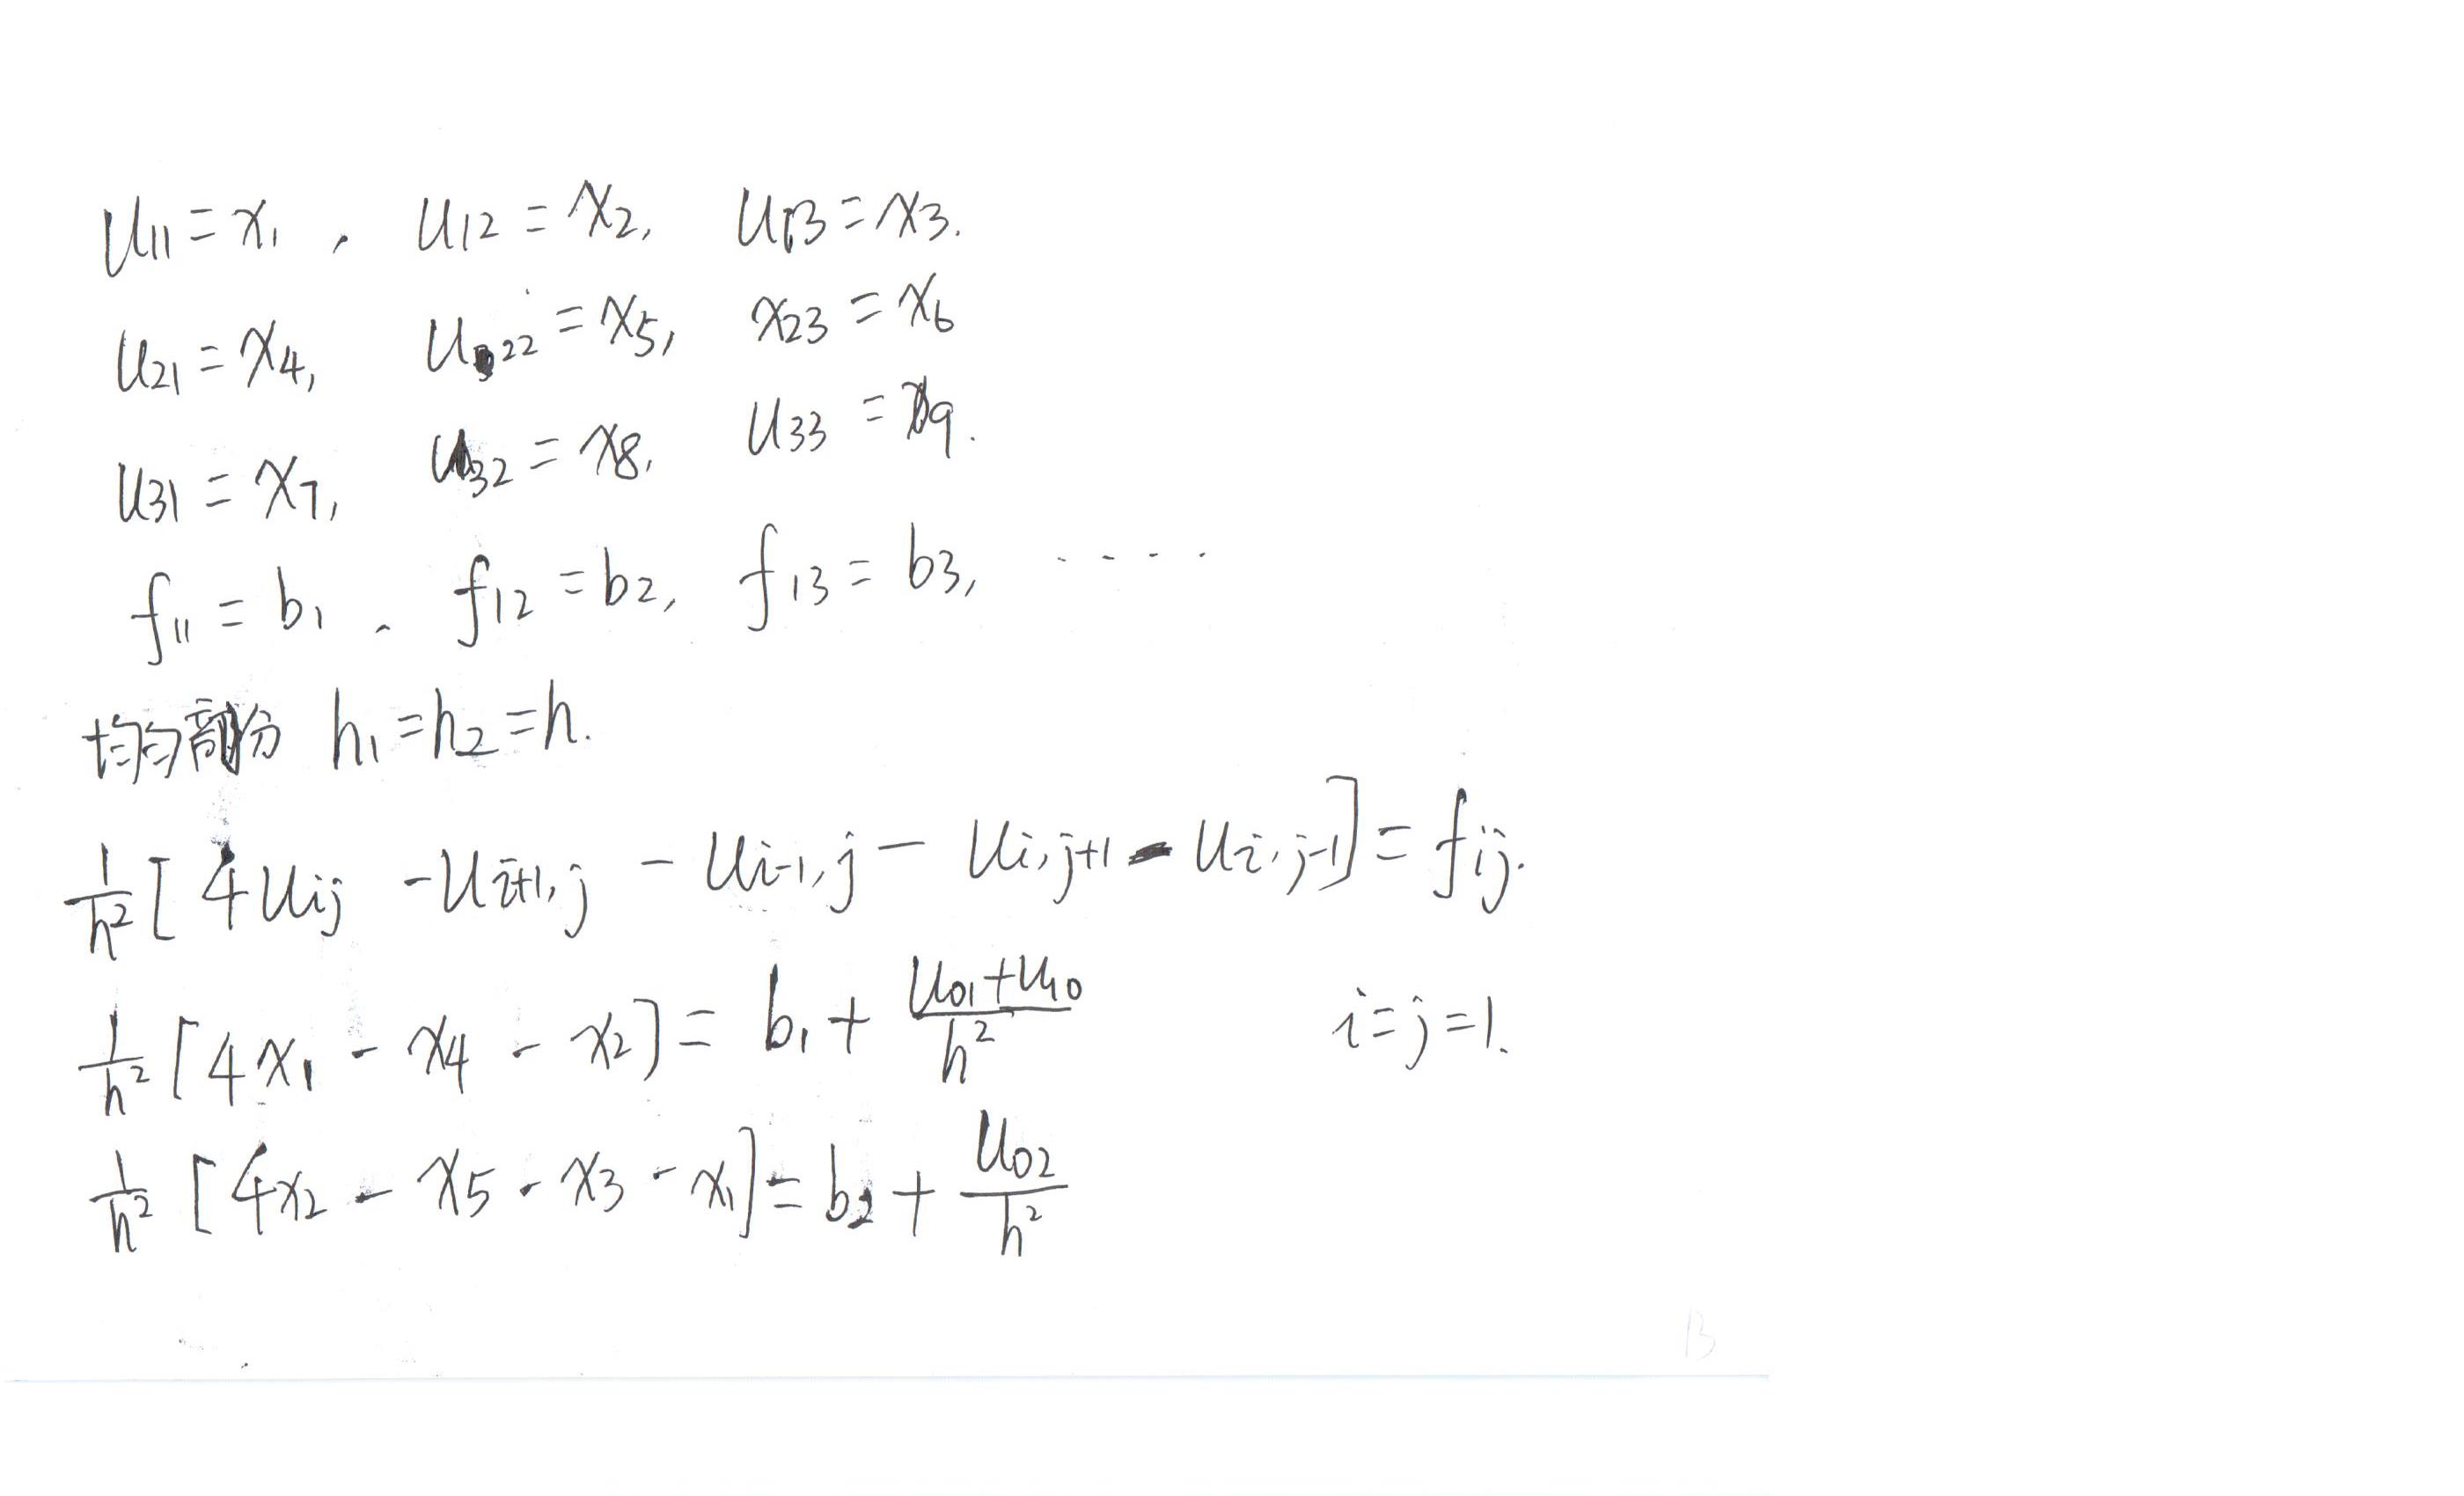 u₁₁ = x₁, u₁₂ = x₂, u₁₃ = x₃.
u₂₁ = x₄, u₂₂ = x₅, x₂₃ = x₆
u₃₁ = x₇, u₃₂ = x₈, u₃₃ = x₉.
f₁₁ = b₁, f₁₂ = b₂, f₁₃ = b₃, ....
均匀剖分 h₁ = h₂ = h.
1/h² [4u_{ij} - u_{i+1,j} - u_{i-1,j} - u_{i,j+1} - u_{i,j-1}] = f_{ij}.
1/h² [4x₁ - x₄ - x₂] = b₁ + (u₀₁ + u₁₀)/h² i = j = 1.
1/h² [4x₂ - x₅ - x₃ - x₁] = b₂ + u₀₂/h²